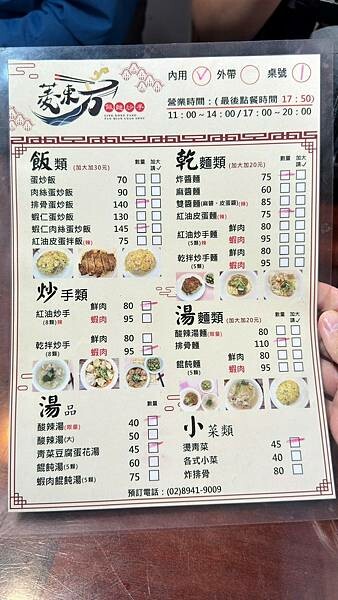 菱東方
麻麵炒手
LING DONG FANG
內用 外帶 桌號 1
營業時間：(最後點餐時間 17：50)
11：00～14：00/17：00～20：00
飯類 (加大加30元) 數量 加大請✓
蛋炒飯 70
肉絲蛋炒飯 90
排骨蛋炒飯 140
蝦仁蛋炒飯 130
蝦仁肉絲蛋炒飯 145
紅油皮蛋拌飯(辣) 75
炒手類 數量
紅油炒手 鮮肉 80
(8顆)辣 蝦肉 95
乾拌炒手 鮮肉 80
(8顆) 蝦肉 95
湯品 數量
酸辣湯(限量) 40
酸辣湯(大) 50
青菜豆腐蛋花湯 45
餛飩湯(5顆) 60
蝦肉餛飩湯(5顆) 75
乾麵類 (加大加20元) 數量 加大請✓
炸醬麵 75
麻醬麵 60
雙醬麵(麻醬、皮蛋醬)(辣) 85
紅油皮蛋麵(辣) 75
紅油炒手麵 鮮肉 80
(5顆)辣 蝦肉 95
乾拌炒手麵 鮮肉 80
(5顆) 蝦肉 95
湯麵類 (加大加20元) 數量 加大請✓
酸辣湯麵(限量) 80
排骨麵 110
餛飩麵 鮮肉 80
(5顆) 蝦肉 95
小菜類 數量
燙青菜 45
各式小菜 40
炸排骨 80
預訂電話：(02)8941-9009